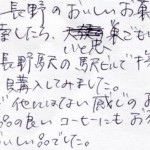 長野のおいしいお菓
索したら、巣ごも
いと思
長野駅の駅ビルで探
良購入してみました。
で他にはない感じのお
品の良いコーヒーにもお
いしい品でした。